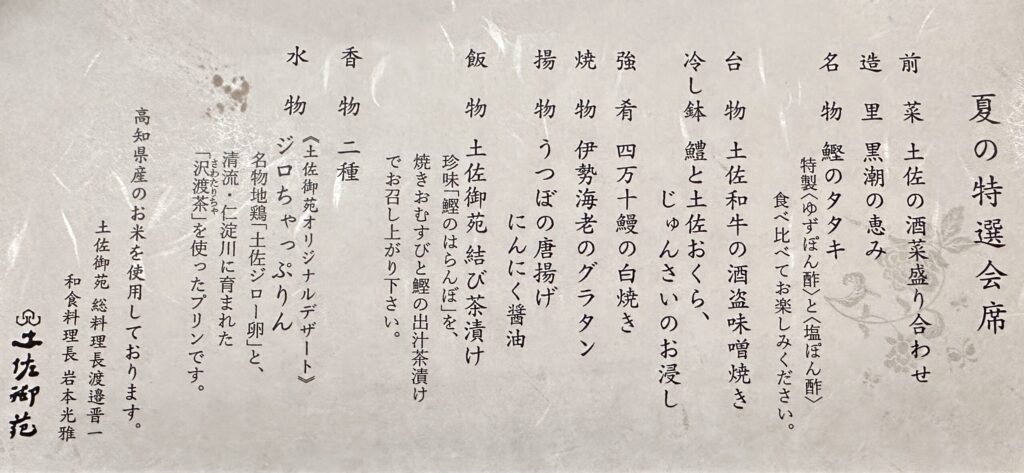 夏の特選会席
前菜 土佐の酒菜盛り合わせ
造里 黒潮の恵み
名物 鰹のタタキ
特製〈ゆずぽん酢〉と〈塩ぽん酢〉
食べ比べてお楽しみください。
台物 土佐和牛の酒盗味噌焼き
冷し鉢 鱧と土佐おくら、
じゅんさいのお浸し
強肴 四万十鰻の白焼き
焼物 伊勢海老のグラタン
揚物 うつぼの唐揚げ
にんにく醬油
飯物 土佐御苑 結び茶漬け
珍味「鰹のはらんぼ」を、
焼きおむすびと鰹の出汁茶漬け
でお召し上がり下さい。
香物 二種
水物 ジロちゃっぷりん
《土佐御苑オリジナルデザート》
名物地鶏「土佐ジロー卵」と、
清流・仁淀川に育まれた
「沢渡茶」を使ったプリンです。
さわたりちゃ
高知県産のお米を使用しております。
土佐御苑 総料理長 渡邉晋一
和食料理長 岩本光雅
土佐御苑